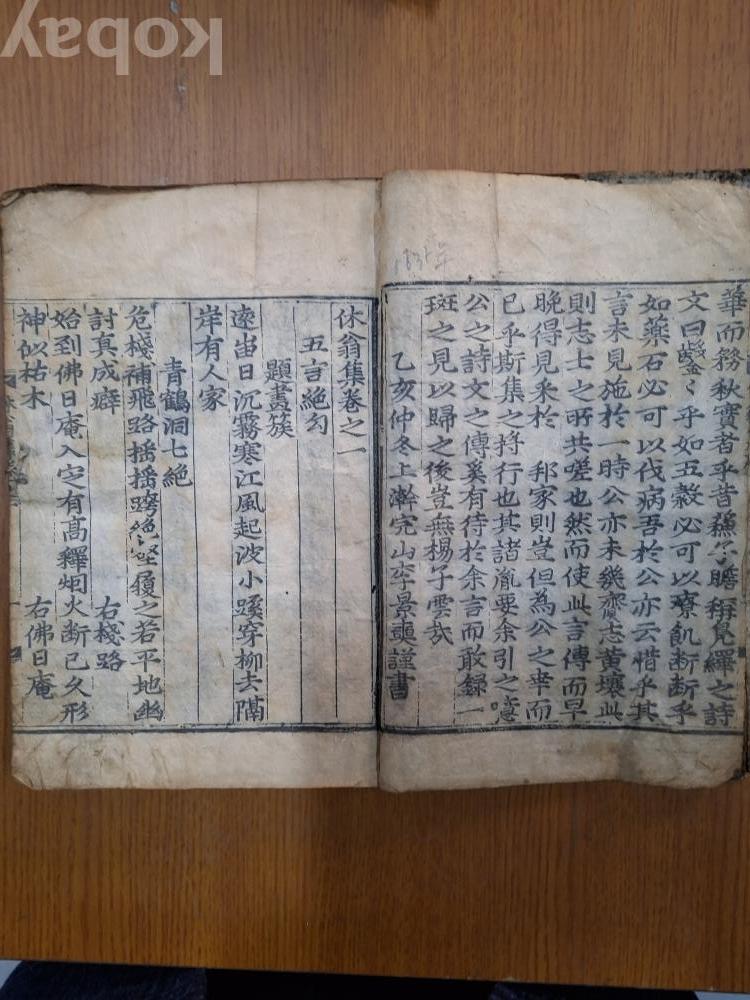 kobay
1635年
華而務秋實者乎昔蘇子瞻稱鳧繹之詩
文曰鑿々乎如五穀必可以療飢斷斷乎
如藥石必可以伐病吾於公亦云惜乎其
言未見施於一時公亦未幾齎志黃壤此
則志士之所共嗟也然而使此言傳而早
晚得見采於 邦家則豈但為公之幸而
已乎斯集之將行也其諸胤要余引之噫
公之詩文之傳奚有待於余言而敢錄一
斑之見以歸之後豈無楊子雲哉
乙亥仲冬上澣完山李景奭謹書
休翁集卷之一
五言絕句
題畫簇
遠岫日沉霧寒江風起波小蹊穿柳去隔
岸有人家
青鶴洞七絕
危棧補飛路搖搖躋絕壑履之若平地幽
討真成癖 右棧路
始到佛日庵入定有高釋烟火断已久形
神似枯木 右佛日庵